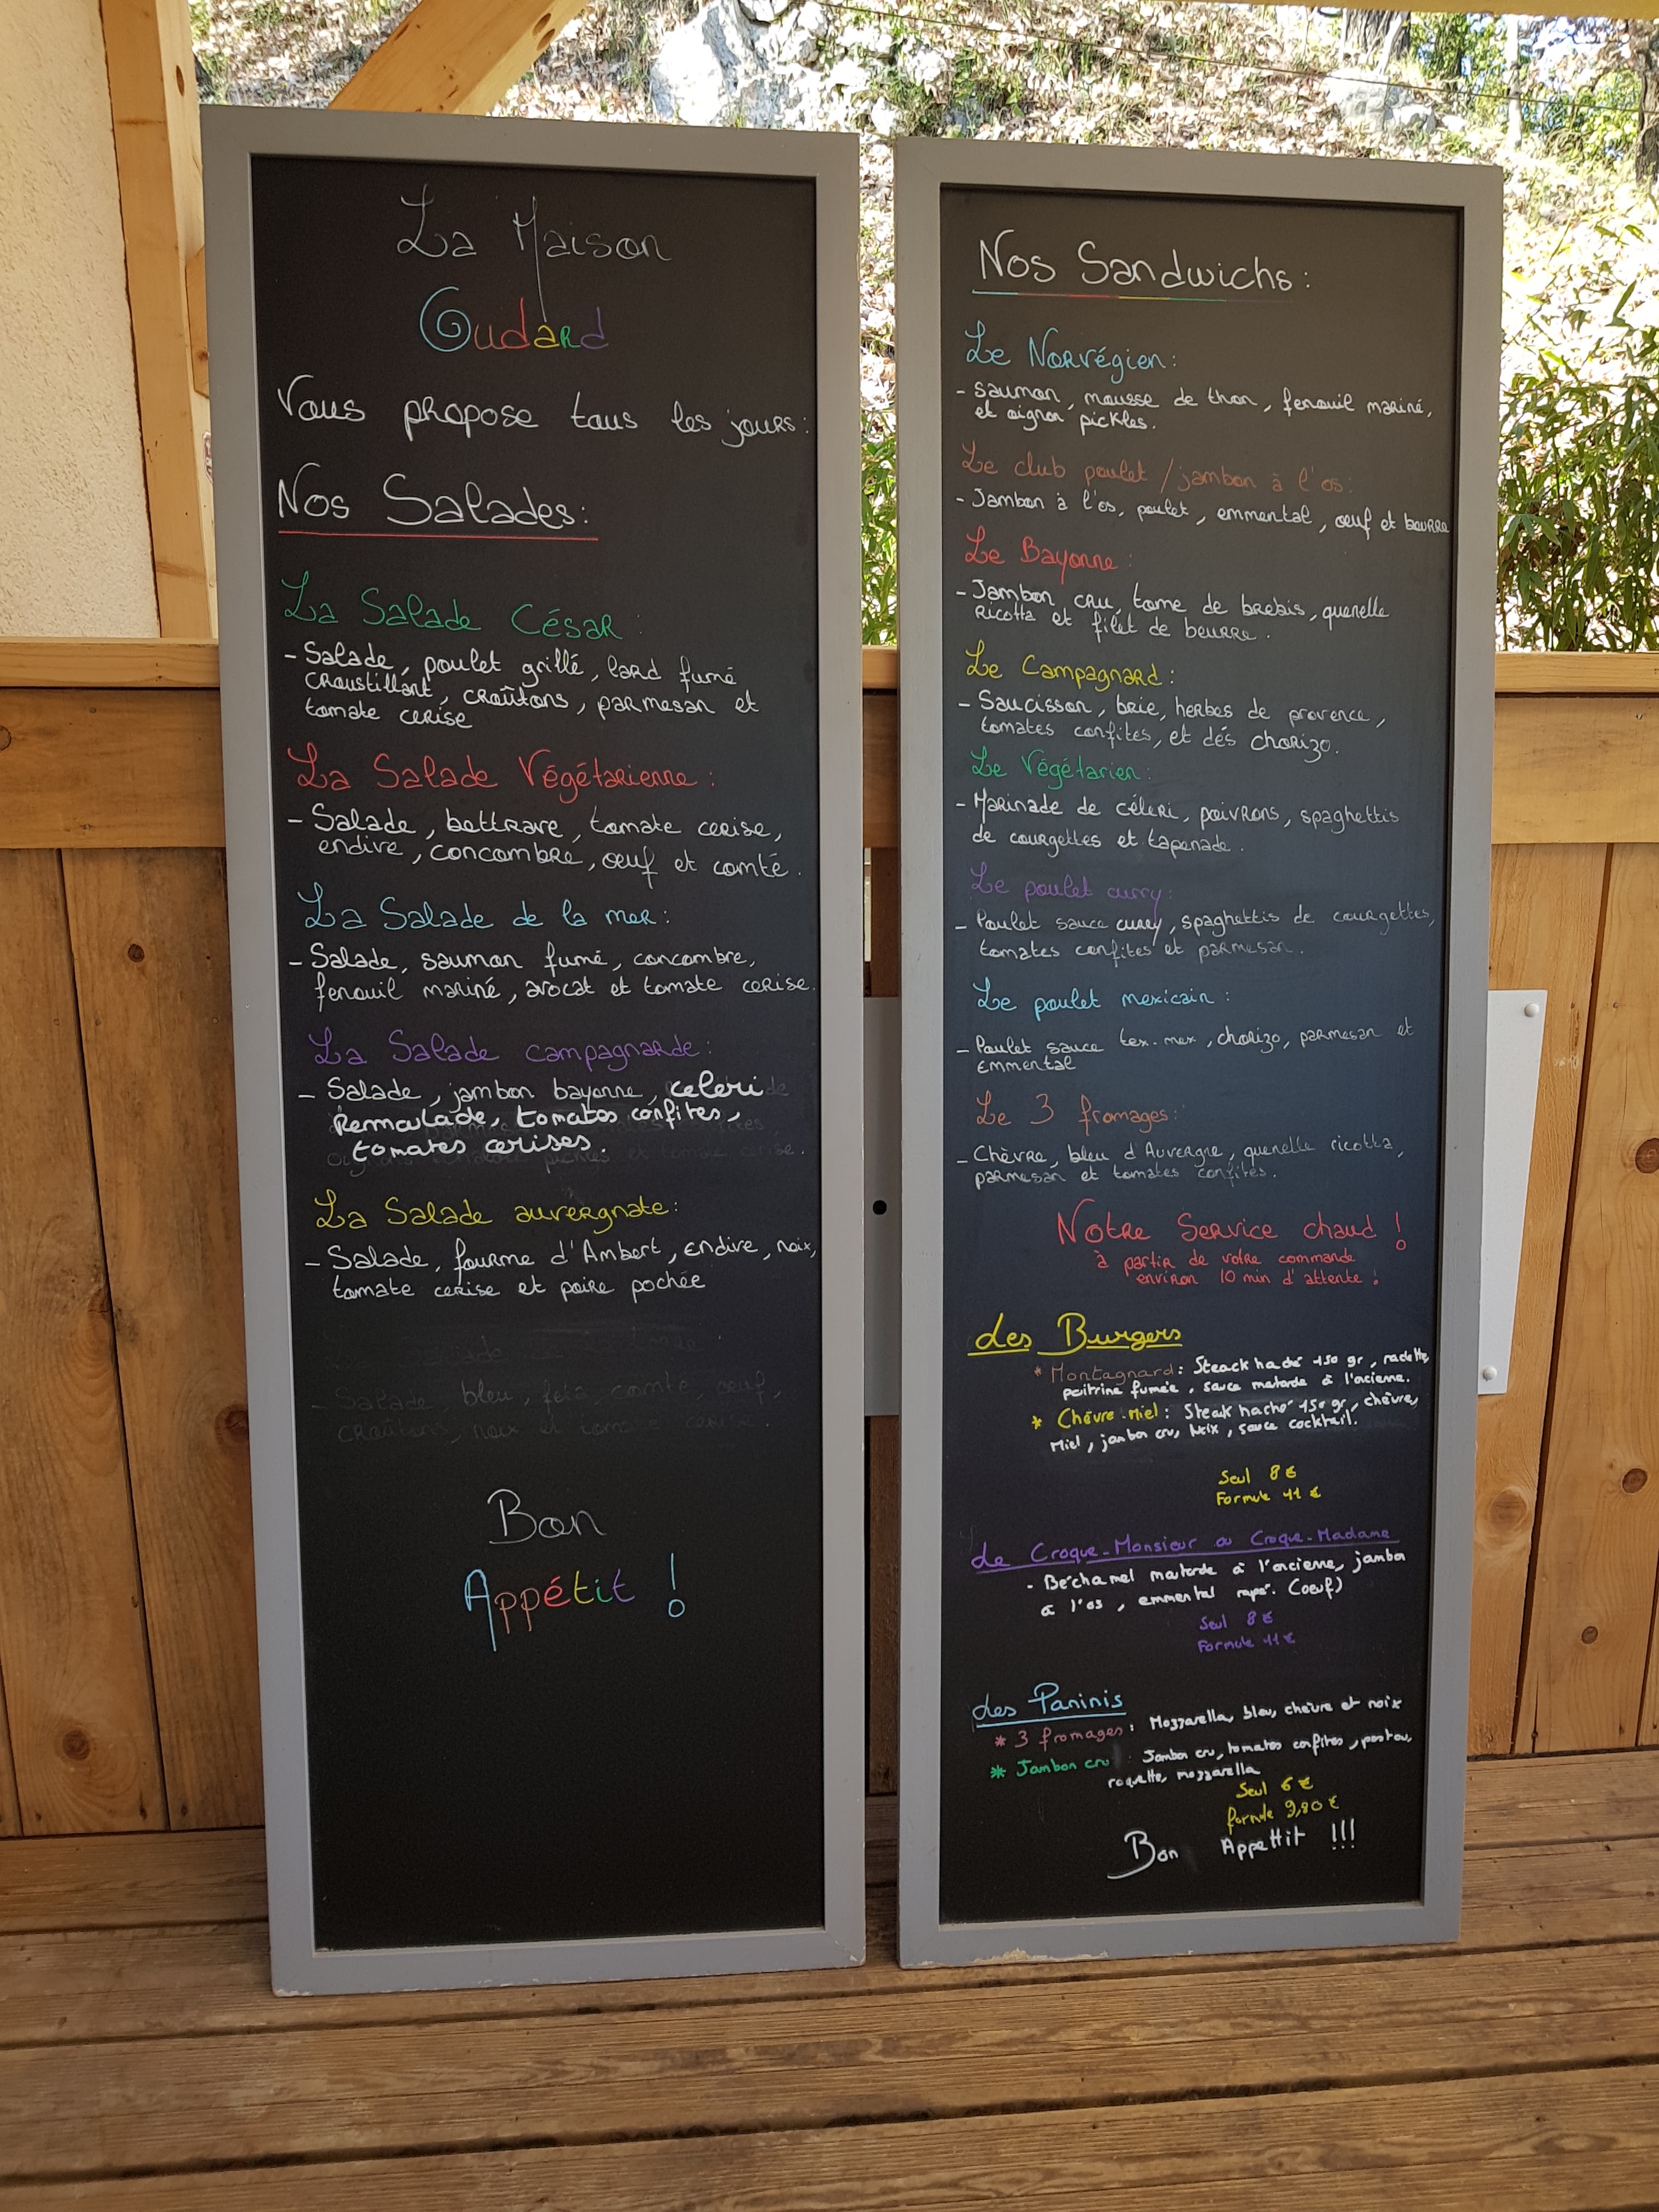 La Maison
Gudard
Vous propose tous les jours :
Nos Salades :
La Salade César :
- Salade, poulet grillé, lard fumé
croustillant, croûtons, parmesan et
tomate cerise
La Salade Végétarienne :
- Salade, bettrave, tomate cerise,
endive, concombre, œuf et comté.
La Salade de la mer :
- Salade, saumon fumé, concombre,
fenouil mariné, avocat et tomate cerise.
La Salade campagnarde :
- Salade, jambon bayonne, celeri
Remoulade, tomates confites,
tomates cerises.
La Salade auvergnate :
- Salade, fourme d'Ambert, endive, noix,
tomate cerise et poire pochée
- Salade, bleu, feta, comté, œuf,
croûtons, noix et tomate cerise.
Bon
Appétit !
Nos Sandwichs :
Le Norvégien :
- Saumon, mousse de thon, fenouil mariné,
et oignon pickles.
Le club poulet / jambon à l'os :
- Jambon à l'os, poulet, emmental, œuf et beurre
Le Bayonne :
- Jambon cru, tome de brebis, quenelle
Ricotta et filet de beurre.
Le Campagnard :
- Saucisson, brie, herbes de provence,
tomates confites, et dés chorizo.
Le Végétarien :
- Marinade de céleri, poivrons, spaghettis
de courgettes et tapenade.
Le poulet curry :
- Poulet sauce curry, spaghettis de courgettes,
tomates confites et parmesan.
Le poulet mexicain :
- Poulet sauce tex-mex, chorizo, parmesan et
Emmental
Le 3 fromages :
- Chèvre, bleu d'Auvergne, quenelle ricotta,
parmesan et tomates confites.
Notre Service chaud !
à partir de votre commande
environ 10 min d'attente !
Les Burgers
* Montagnard : Steack haché 150 gr, raclette,
poitrine fumée, sauce moutarde à l'ancienne.
* Chèvre-Miel : Steak haché 150 gr, chèvre,
Miel, jambon cru, Noix, sauce cocktail.
Seul 8 €
Formule 11 €
Le Croque-Monsieur ou Croque-Madame
- Béchamel moutarde à l'ancienne, jambon
à l'os, emmental rapé. (oeuf)
Seul 8 €
Formule 11 €
Les Paninis
* 3 fromages : Mozzarella, bleu, chèvre et noix
* Jambon cru : Jambon cru, tomates confites, pestou,
roquette, mozzarella
Seul 6 €
formule 9,80 €
Bon Appettit !!!